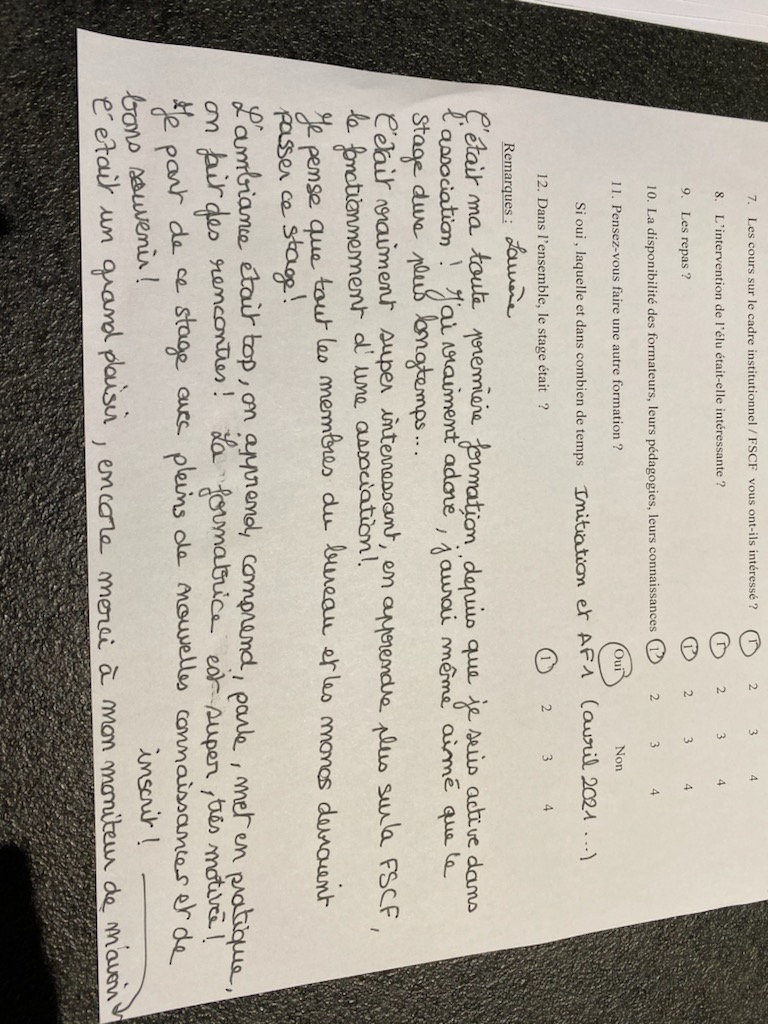 7. Les cours sur le cadre institutionnel / FSCF vous ont-ils intéressé ? 1 2 3 4
8. L'intervention de l'élu était-elle intéressante ? 1 2 3 4
9. Les repas ? 1 2 3 4
10. La disponibilité des formateurs, leurs pédagogies, leurs connaissances 1 2 3 4
11. Pensez-vous faire une autre formation ? Oui Non
Si oui, laquelle et dans combien de temps Initiation et AF1 (avril 2021 ...)
12. Dans l'ensemble, le stage était ? 1 2 3 4
Remarques :
C'était ma toute première formation depuis que je suis active dans
l'association ! J'ai vraiment adoré, j'aurai même aimé que le
stage dure plus longtemps...
C'était vraiment super interressant, en apprendre plus sur la FSCF,
le fonctionnement d'une association !
Je pense que tout les membres du bureau et les monos devraient
passer ce stage !
L'ambiance était top, on apprend, comprend, parle, met en pratique,
on fait des rencontres ! La formatrice est super, très motivée !
Je part de ce stage avec pleins de nouvelles connaissances et de
bons souvenirs !
C'était un grand plaisir, encore merci à mon moniteur de m'avoir
inscrit !